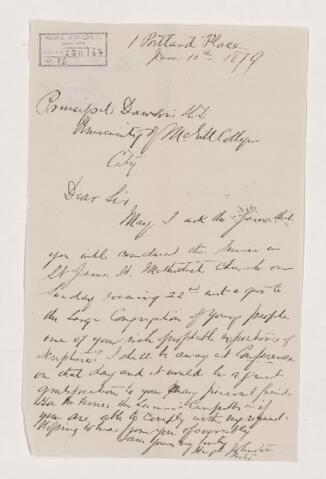 1 Portland Place
June 10th 1879
Principal Dawson
University of McGill College
City
Dear Sir
May I ask the favor that
you will conduct the Service in
St James St. Methodist Church on
Sunday evening 22nd and give to
the large Congregation of young people
one of your rich profitable expositions of
Scripture. I shall be away at Conference
on that day and it would be a great
gratification to your many personal friends
if
you are able to comply with my request.
Hoping to hear from you favorably
I am yours very truly
Hugh Johnston